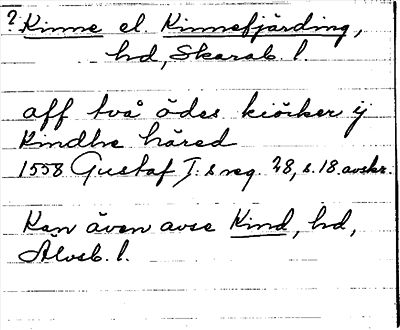 ? Kinne el. Kinnefjärding,
hd, Skarab. l.
aff två ödes kiörker ij
Kindhe häred
1558 Gustaf I:s reg. 28, s. 18. avskr.
Kan även avse Kind, hd,
Älvsb. l.